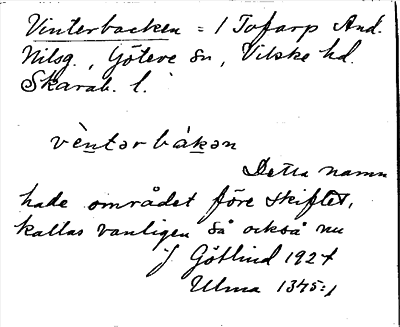 Vinterbacken = 1 Tofarp And.
Nilsg., Göteve sn, Vilske hd.
Skarab. l.
vèntərbàkən
Detta namn
hade området före skiftet,
kallas vanligen så också nu
J Götlind 1924
Ulma 1345:1